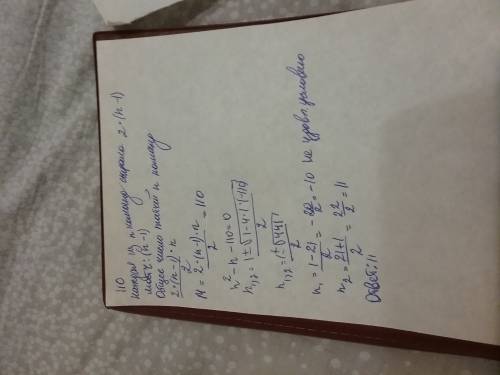 110
каждая из n команд сыграла 2·(n-1)
матч: (n-1)
Общее число матчей n команд
2·(n-1)·n
2
N = 2·(n-1)·n / 2 = 110
n² - n - 110 = 0
n₁,₂ = 1 ± √1-4·1·(-110) / 2
n₁,₂ = 1 ± √441 / 2
n₁ = 1-21 / 2 = -20 / 2 = -10 не удовл условию
n₂ = 21+1 / 2 = 22 / 2 = 11
Ответ: 11